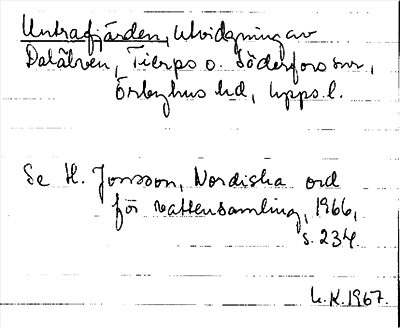 Untrafjärden, utvidgning av
Dalälven, Tierps o. Söderfors snr,
Örbyhus hd, Upps. l.
Se H. Jonsson, Nordiska ord
för vattensamling, 1966,
s. 234.
L.K. 1967.